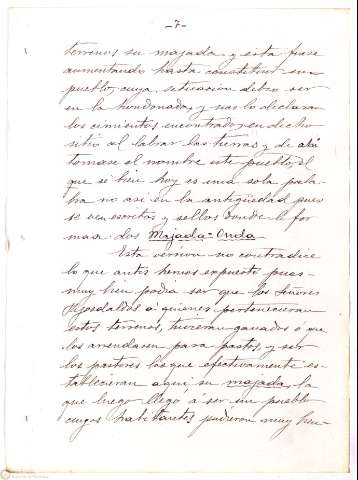 -7-
terrenos su majada y esta fuese
aumentando hasta constituir un
pueblo, cuya situación debio ser
en la hondonada, y nos lo declaran
los cimientos encontrados en dicho
sitio al labrar las tierras y de ahi
tomase el nombre este pueblo, el
que si bien hoy es una sola pala-
bra no asi en la antigüedad pues
se ven escritos y sellos donde le for
man dos Majada-Onda
Esta version no contradice
lo que antes hemos expuesto pues
muy bien podia ser que los Señores
Hijosdaldos á quienes pertenecieran
estos terrenos, tuvieran ganados ó que
los arrendasen para pastos, y ser
los pastores los que efectivamente es-
tablecieran aqui su majada, la
que luego llegó á ser un pueblo
cuyos habitantes pudieron muy bien